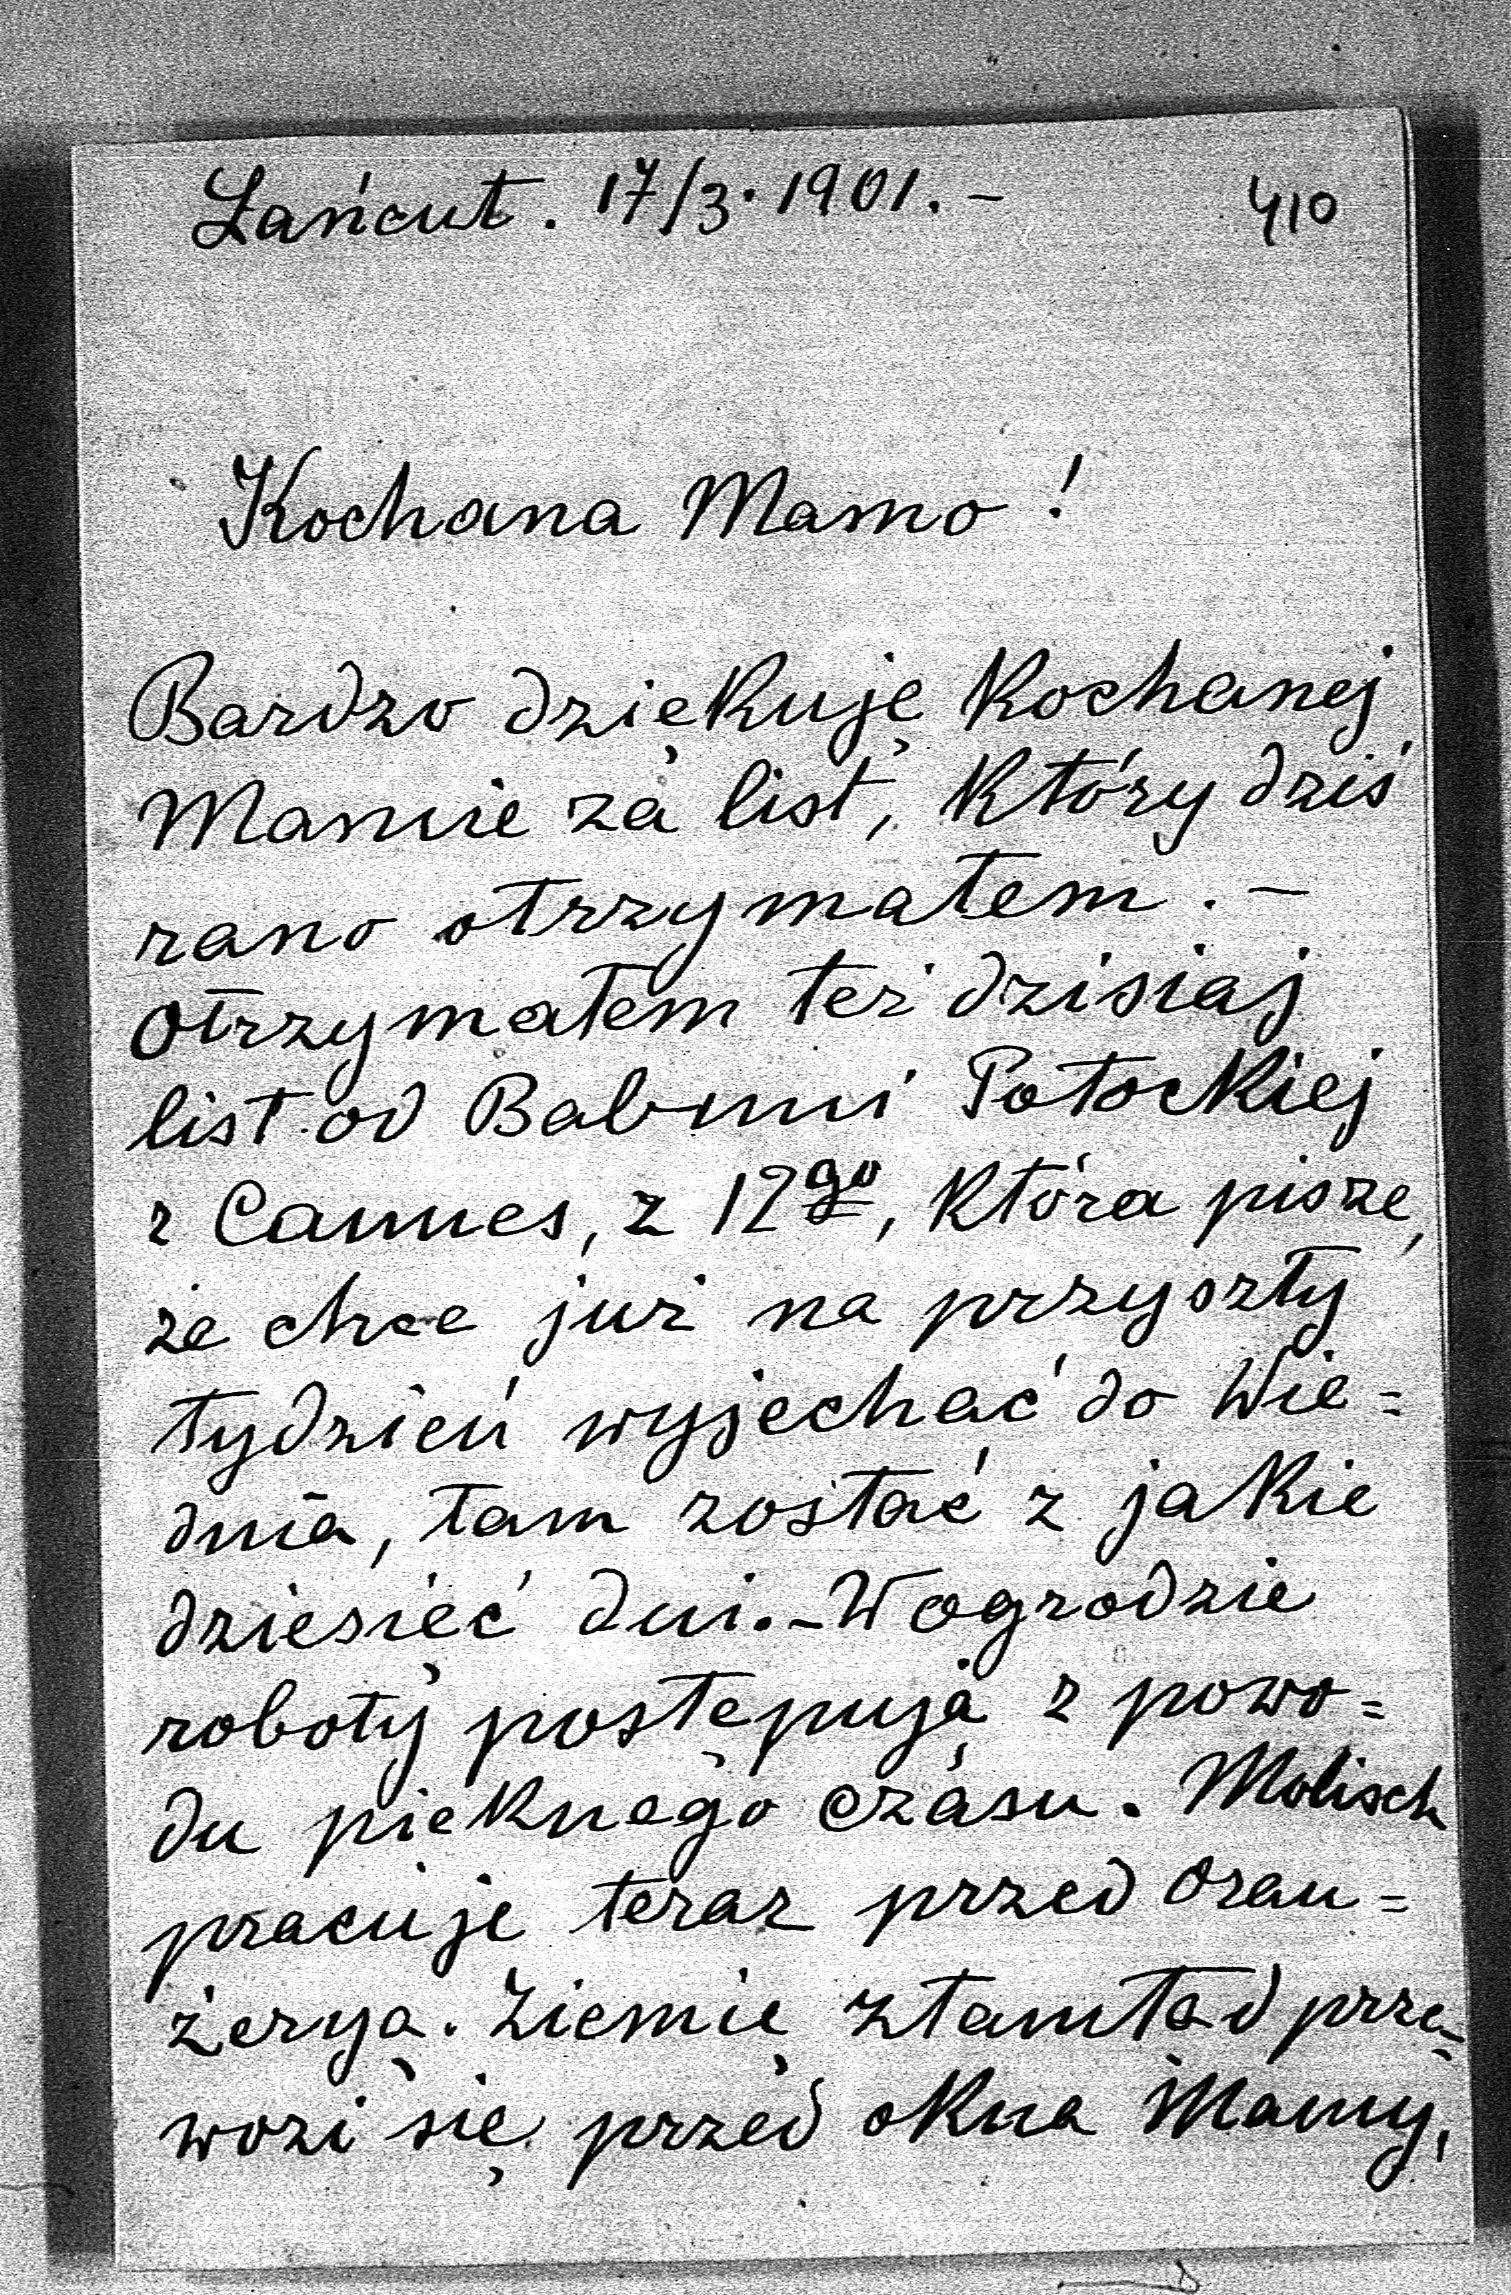 Łańcut. 17/3. 1901. –
410
Kochana Mamo!
Bardzo dziękuję Kochanej
Mamie za list, który dziś
rano otrzymałem. –
Otrzymałem też dzisiaj
list od Babuni Potockiej
z Cannes, z 12go, która pisze,
że chce już na przyszły
tydzień wyjechać do Wie=
dnia, tam zostać z jakie
dziesięć dni. – W ogrodzie
roboty postępują z powo=
du pięknego czasu. Molisch
pracuje teraz przed oran=
żeryą. Ziemię ztamtąd prze=
wozi się przed okna Mamy,